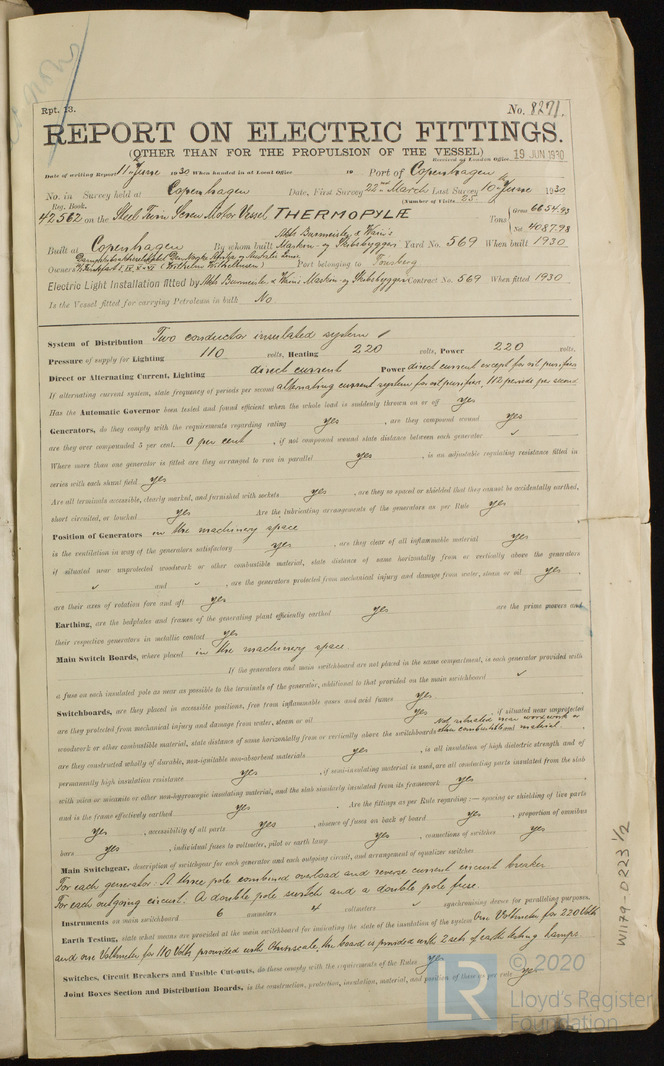 Rpt. 13.
No. 8271.
REPORT ON ELECTRIC FITTINGS.
(OTHER THAN FOR THE PROPULSION OF THE VESSEL)
Received at London Office 19 JUN 1930
Date of writing Report 11th June 1930 When handed in at Local Office 19 Port of Copenhagen
No. in Survey held at Copenhagen Date, First Survey 22nd March Last Survey 10th June 1930
Reg. Book. (Number of Visits 25.
42562 on the Steel Twin Screw Motor Vessel THERMOPYLÆ Tons { Gross 6654.93
Net 4087.98
Built at Copenhagen By whom built Mess Burmeister & Wain's Maskin- og Skibsbyggeri Yard No. 569 When built 1930
Owners (Wilhelm Wilhelmsen) Port belonging to Tönsberg
Electric Light Installation fitted by Mess Burmeister & Wains Maskin- og Skibsbyggeri Contract No. 569 When fitted 1930
Is the Vessel fitted for carrying Petroleum in bulk No
System of Distribution Two conductor insulated system
Pressure of supply for Lighting 110 volts, Heating 220 volts, Power 220 volts.
Direct or Alternating Current, Lighting direct current Power direct current except for oil purifier
If alternating current system, state frequency of periods per second alternating current system for oil purifier, 112 periods per second
Has the Automatic Governor been tested and found efficient when the whole load is suddenly thrown on or off yes
Generators, do they comply with the requirements regarding rating yes, are they compound wound yes
are they over compounded 5 per cent. 0 per cent, if not compound wound state distance between each generator ✓
Where more than one generator is fitted are they arranged to run in parallel yes, is an adjustable regulating resistance fitted in
series with each shunt field yes
Are all terminals accessible, clearly marked, and furnished with sockets yes, are they so spaced or shielded that they cannot be accidentally earthed,
short circuited, or touched yes Are the lubricating arrangements of the generators as per Rule yes
Position of Generators in the machinery space
is the ventilation in way of the generators satisfactory yes, are they clear of all inflammable material yes
if situated near unprotected woodwork or other combustible material, state distance of same horizontally from or vertically above the generators
✓ and ✓, are the generators protected from mechanical injury and damage from water, steam or oil yes,
are their axes of rotation fore and aft yes
Earthing, are the bedplates and frames of the generating plant efficiently earthed yes are the prime movers and
their respective generators in metallic contact yes
Main Switch Boards, where placed in the machinery space
If the generators and main switchboard are not placed in the same compartment, is each generator provided with
a fuse on each insulated pole as near as possible to the terminals of the generator, additional to that provided on the main switchboard ✓
Switchboards, are they placed in accessible positions, free from inflammable gases and acid fumes yes
are they protected from mechanical injury and damage from water, steam or oil yes, if situated near unprotected
woodwork or other combustible material, state distance of same horizontally from or vertically above the switchboards not situated near woodwork or other combustible material,
are they constructed wholly of durable, non-ignitable non-absorbent materials yes, is all insulation of high dielectric strength and of
permanently high insulation resistance yes, if semi-insulating material is used, are all conducting parts insulated from the slab
with mica or micanite or other non-hygroscopic insulating material, and the slab similarly insulated from its framework yes,
and is the frame effectively earthed yes. Are the fittings as per Rule regarding:— spacing or shielding of live parts
yes, accessibility of all parts yes, absence of fuses on back of board yes, proportion of omnibus
bars yes, individual fuses to voltmeter, pilot or earth lamp yes, connections of switches yes
Main Switchgear, description of switchgear for each generator and each outgoing circuit, and arrangement of equaliser switches
For each generator: A three pole combined overload and reverse current circuit breaker
For each outgoing circuit: A double pole switch and a double pole fuse.
Instruments on main switchboard 6 ammeters 4 voltmeters ✓ synchronising device for paralleling purposes.
Earth Testing, state what means are provided at the main switchboard for indicating the state of the insulation of the system One Voltmeter for 220 Volts
and one Voltmeter for 110 Volts provided with Ohmscale, the board is provided with 2 sets of earth testing lamps
Switches, Circuit Breakers and Fusible Cut-outs, do these comply with the requirements of the Rules yes
Joint Boxes Section and Distribution Boards, is the construction, protection, insulation, material, and position of these as per rule yes
W1179-0223 1/2
© 2020
LR
Lloyd's Register
Foundation